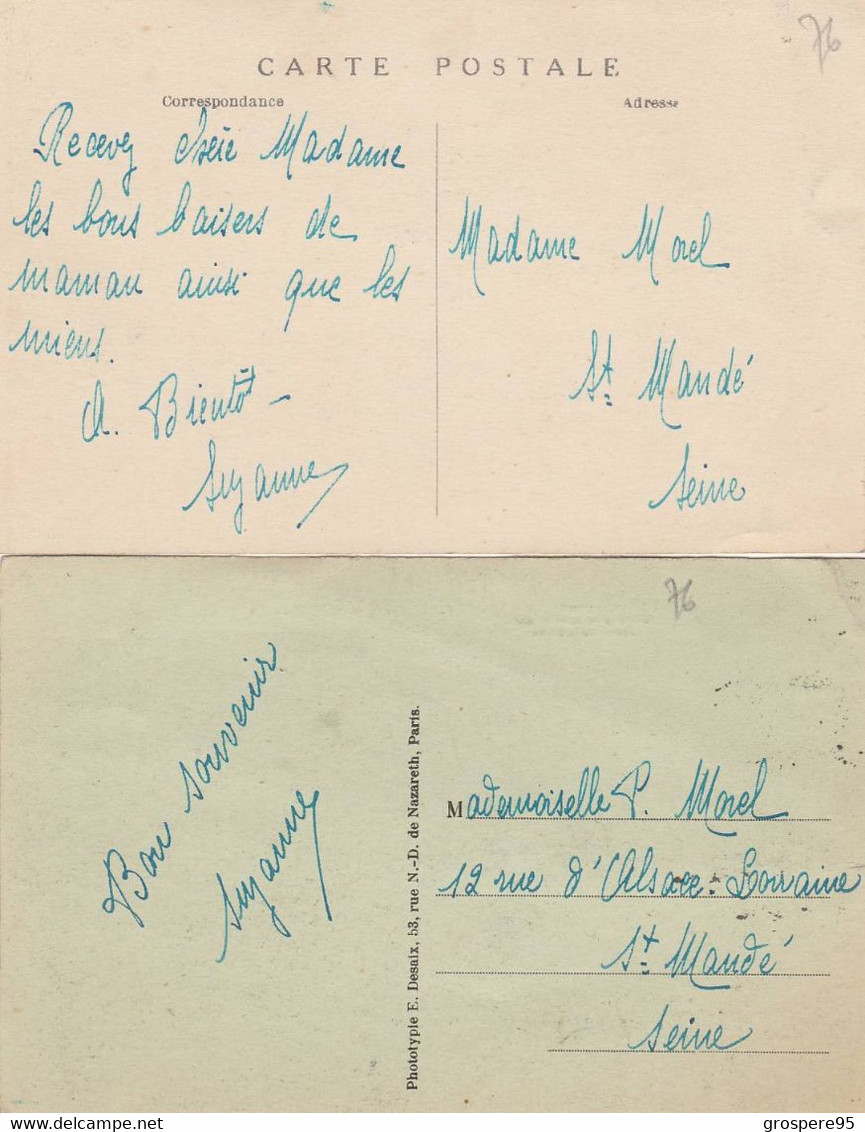 76
CARTE POSTALE
Correspondance
Adresse
Recevez Madame
les bons baisers de
maman ainsi que les
miens.
A. Bientôt -
Suzanne
Madame Morel
St Mandé
Seine
76
Bon souvenir
Suzanne
Phototypie E. Desaix, 53, rue N.-D. de Nazareth, Paris.
Mademoiselle P. Morel
12 rue d'Alsace-Lorraine
St Mandé
Seine
grospere95